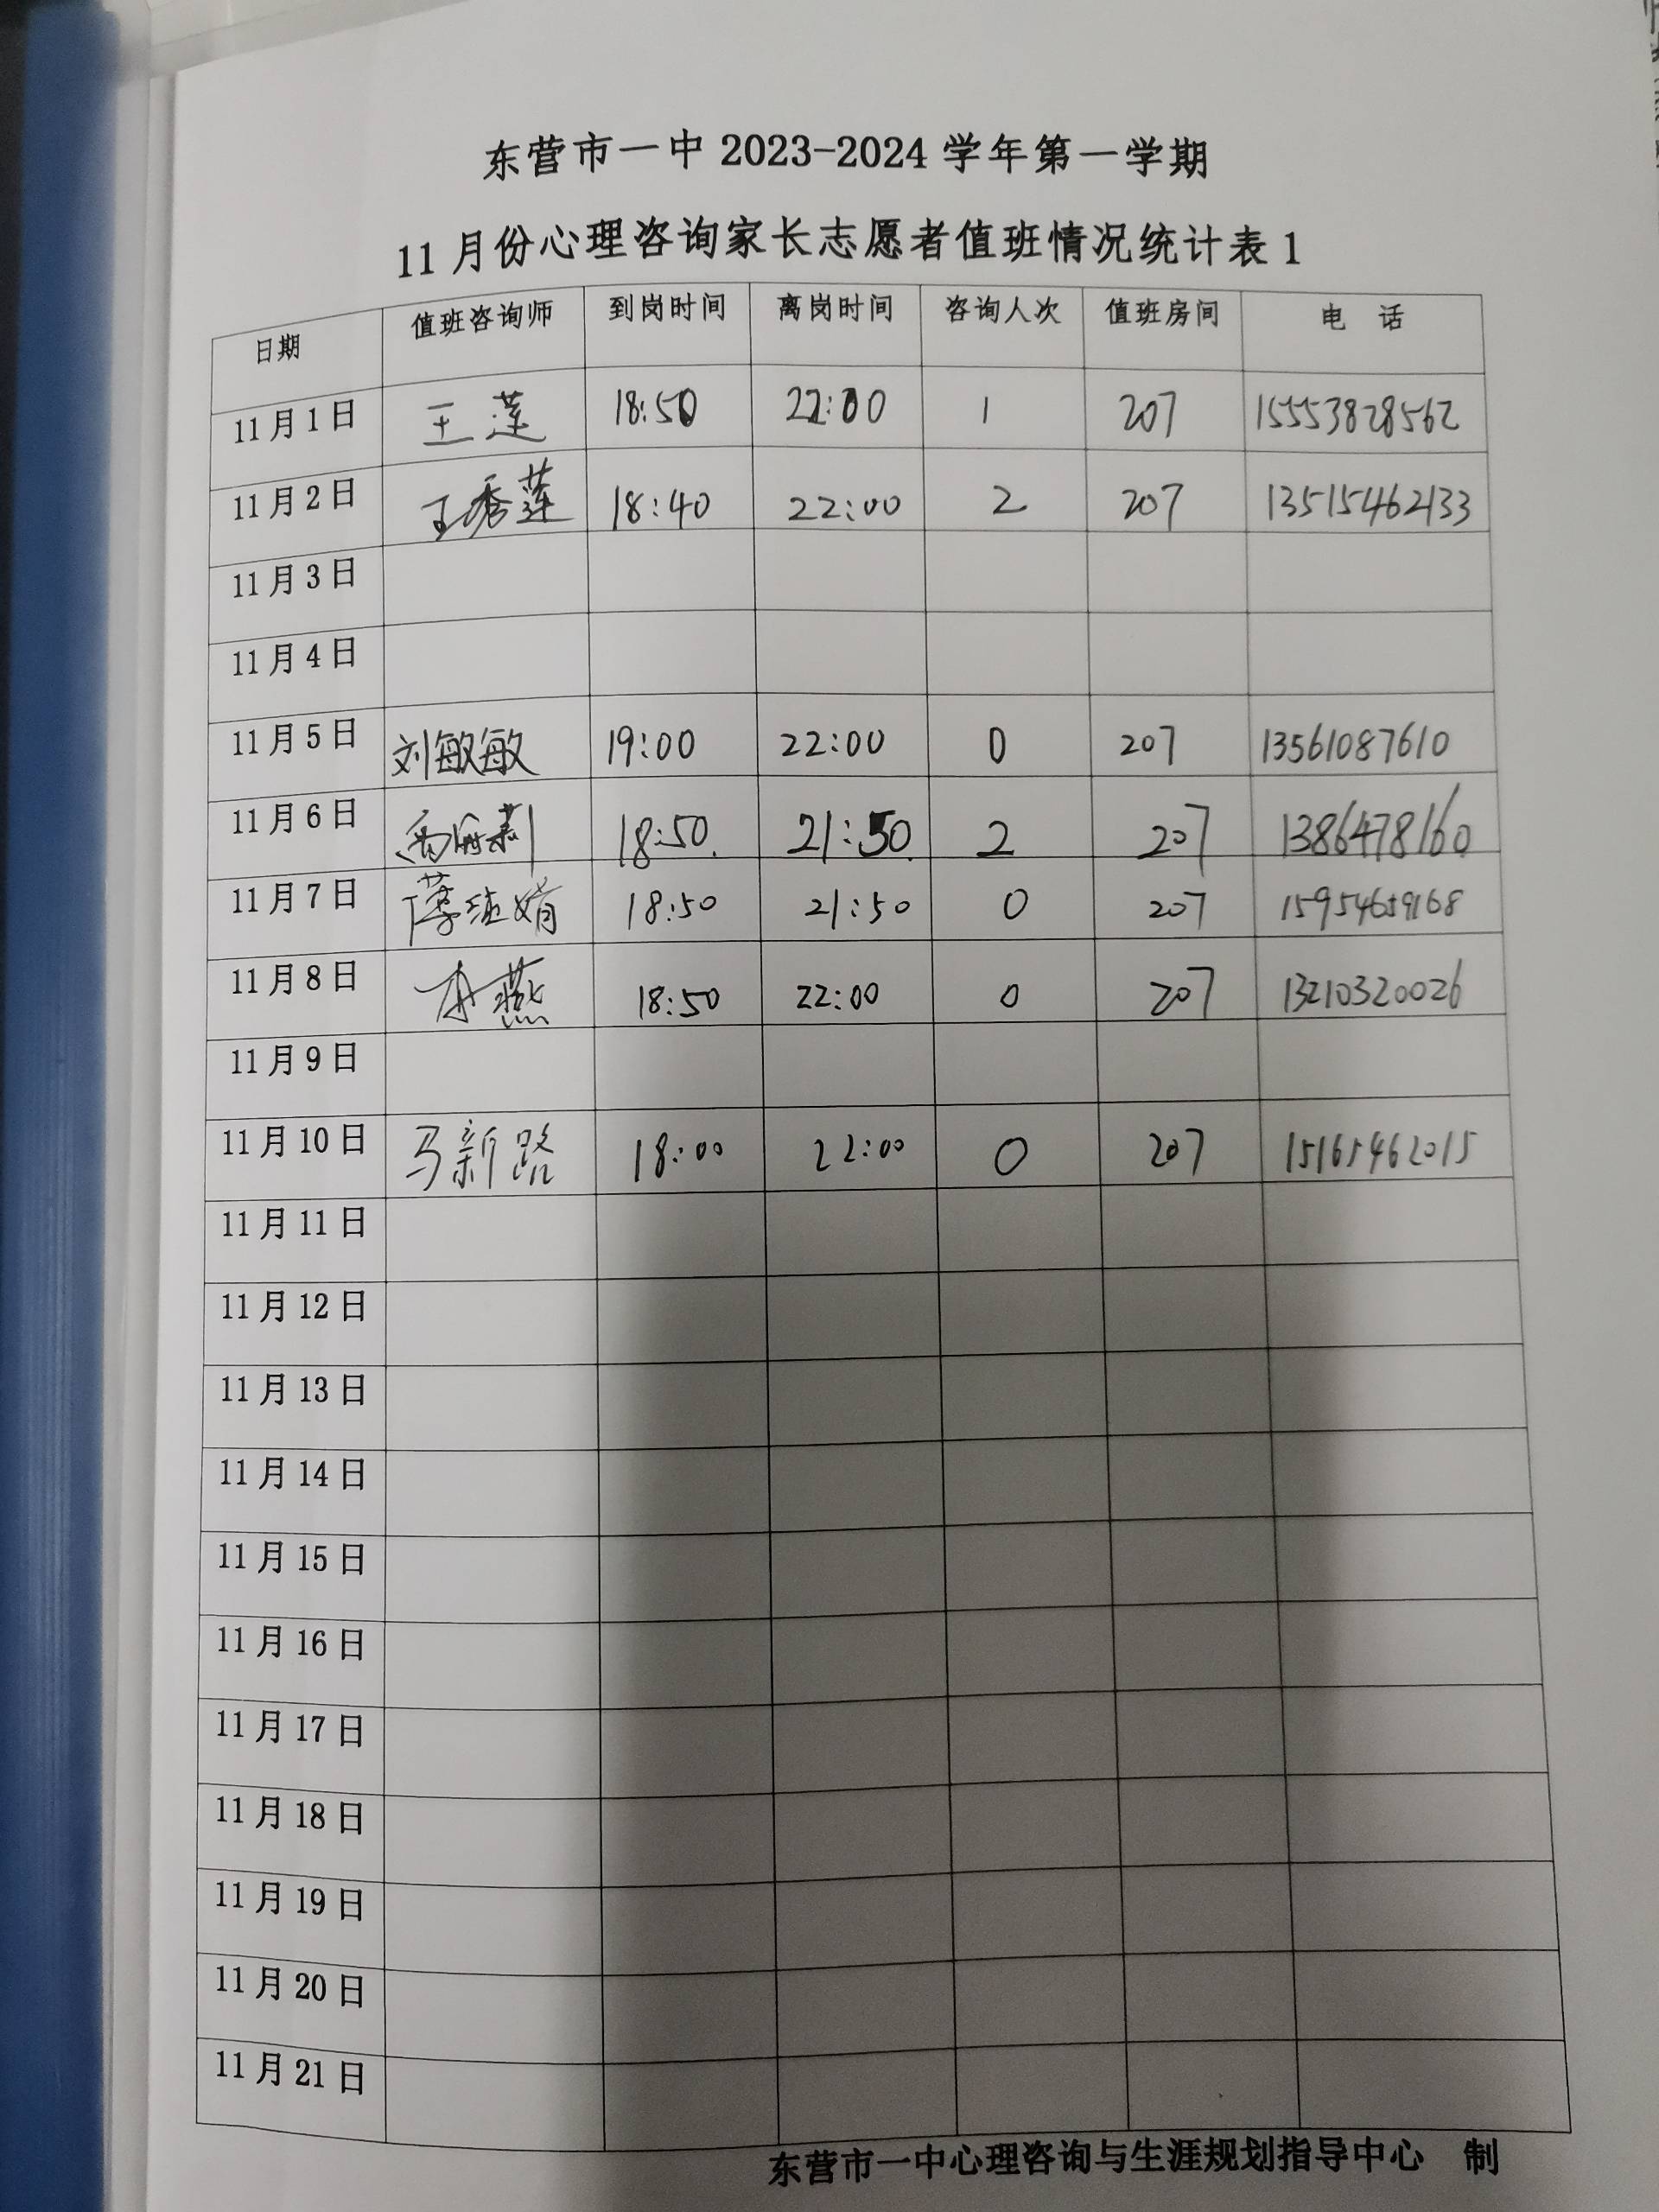 东营市一中 2023-2024 学年第一学期
11 月份心理咨询家长志愿者值班情况统计表 1
日期 值班咨询师 到岗时间 离岗时间 咨询人次 值班房间 电 话
11 月 1 日 王莲 18:50 22:00 1 207 15553828562
11 月 2 日 王秀莲 18:40 22:00 2 207 13515462133
11 月 3 日
11 月 4 日
11 月 5 日 刘敏敏 19:00 22:00 0 207 13561087610
11 月 6 日 18:50 21:50 2 207 13864781160
11 月 7 日 18:50 21:50 0 207 15954659168
11 月 8 日 燕 18:50 22:00 0 207 13210320026
11 月 9 日
11 月 10 日 马新路 18:00 22:00 0 207 15165462015
11 月 11 日
11 月 12 日
11 月 13 日
11 月 14 日
11 月 15 日
11 月 16 日
11 月 17 日
11 月 18 日
11 月 19 日
11 月 20 日
11 月 21 日
东营市一中心理咨询与生涯规划指导中心 制